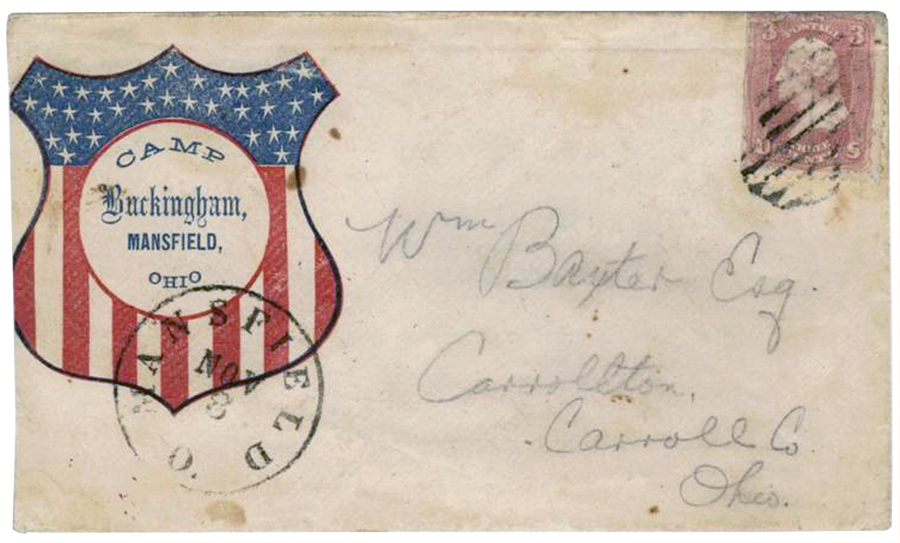 CAMP
Buckingham,
MANSFIELD,
OHIO
MANSFIELD O.
NOV
3 3
POSTAGE
S
Wm Baxter Esq.
Carrollton,
Carroll Co
Ohio.